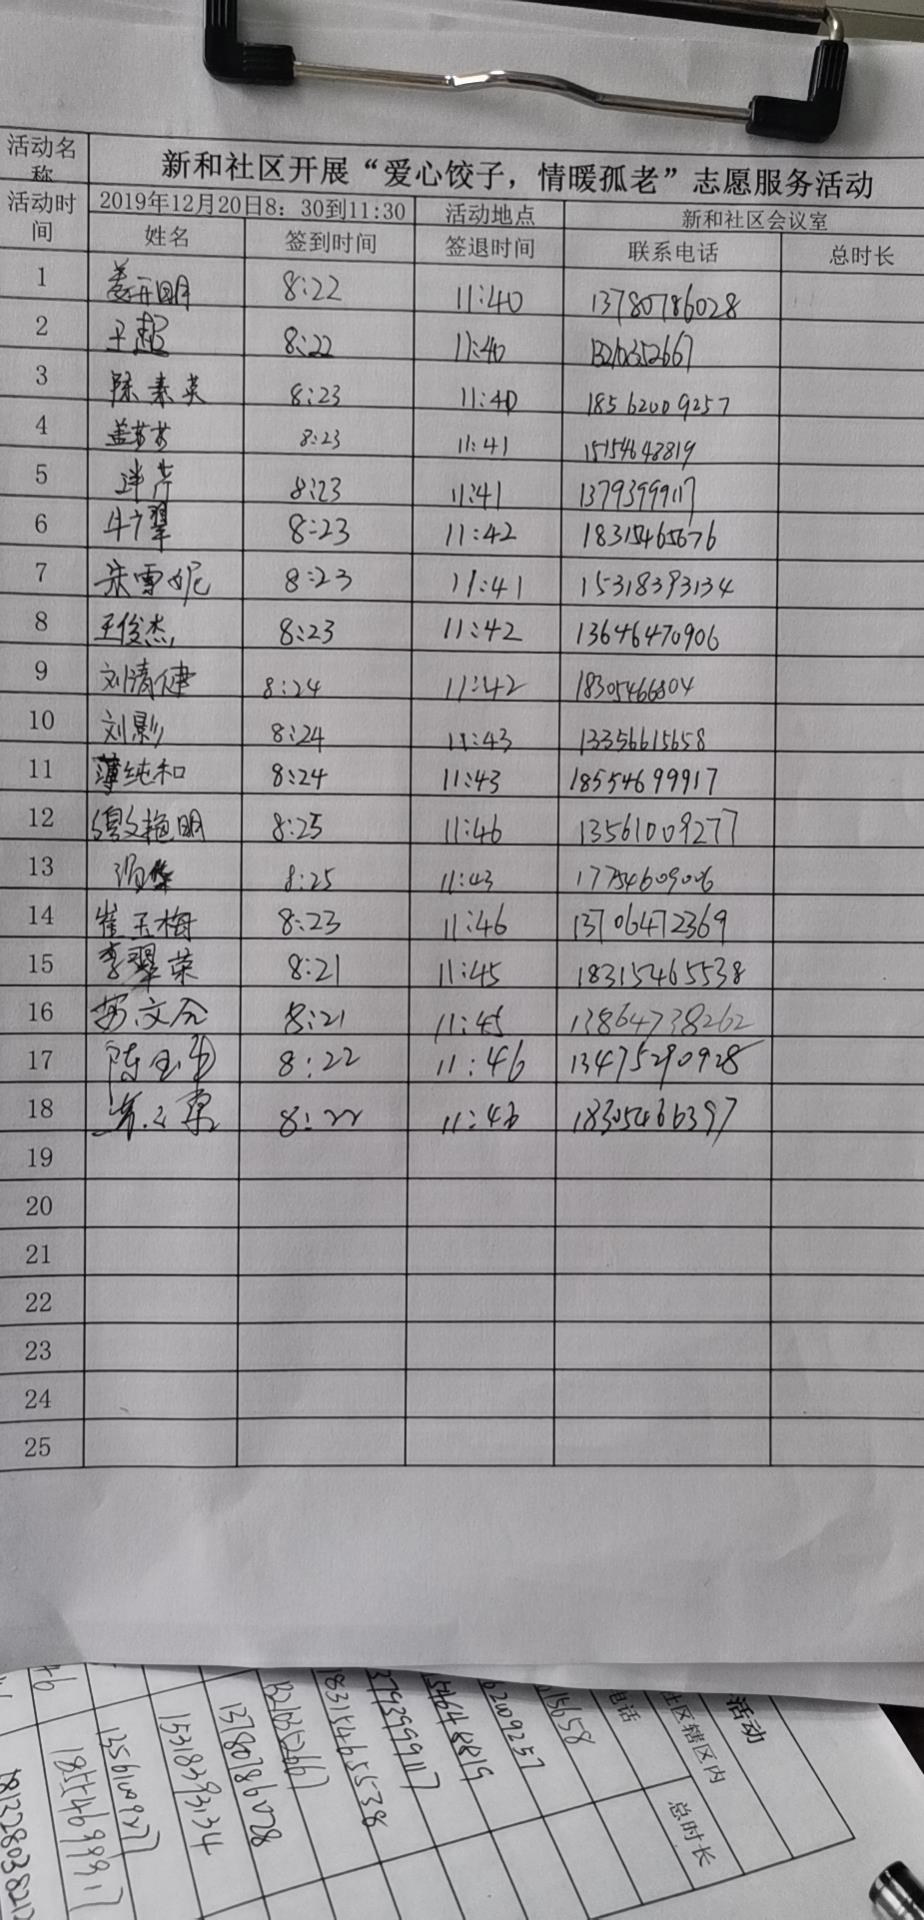 活动名称 新和社区开展“爱心饺子，情暖孤老”志愿服务活动
活动时间 2019年12月20日8：30到11:30 活动地点 新和社区会议室
姓名 签到时间 签退时间 联系电话 总时长
1 姜开明 8:22 11:40 13780786028
2 王超 8:22 11:40
3 陈素英 8:23 11:40 18562009257
4 盖苏苏 8:23 11:41 15154648819
5 8:23 11:41 13793999117
6 牛翠 8:23 11:42 18315465676
7 朱雪妮 8:23 11:41 15318393134
8 王俊杰 8:23 11:42 13646470906
9 刘清健 8:24 11:42 18305466804
10 刘影 8:24 11:43 13356615658
11 薄纯和 8:24 11:43 18554699917
12 缪艳明 8:25 11:46 13561009277
13 8:25 11:43 17754609006
14 崔玉梅 8:23 11:46 13706472369
15 李翠荣 8:21 11:45 18315465538
16 8:21 11:45 13864738262
17 8:22 11:46 13475290928
18 8:22 11:46 18305466397
19
20
21
22
23
24
25
活动
社区辖区内
电话 总时长
15658
62009257
54648819
3793999117
18315465538
13780786028
15318393134
13561009277
18554699917